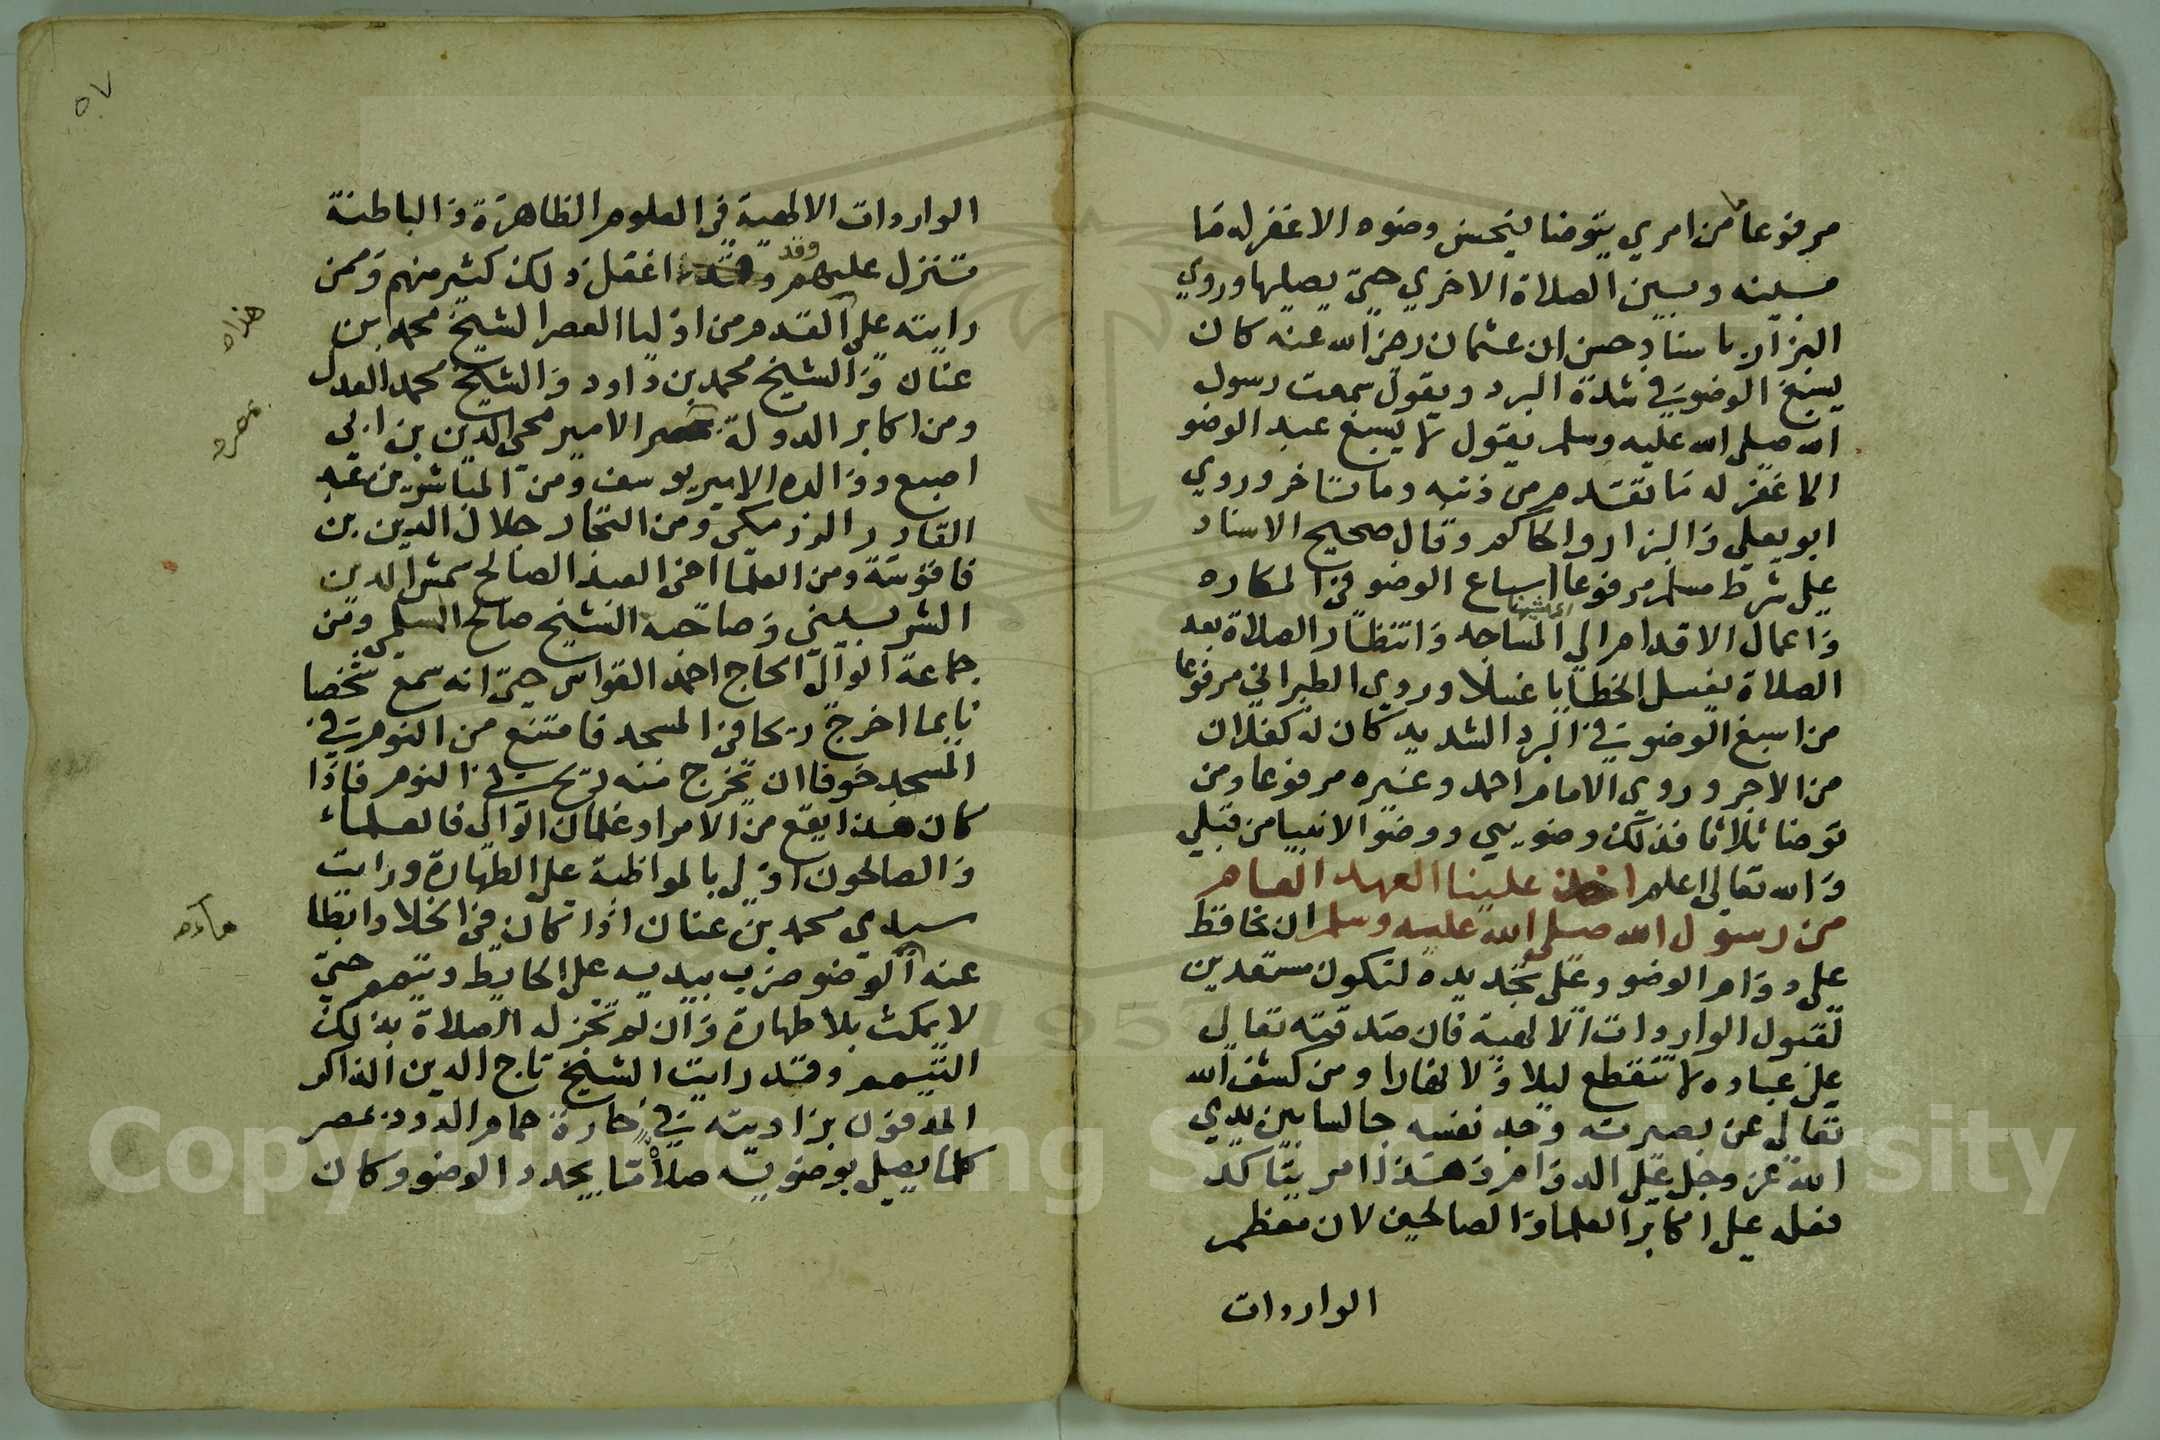 مرفوعا ما من امري يتوضا فيحسن وضوه الا غفر له ما
بينه وبين الصلاة الاخري حتي يصليها وروي
البزار باسناد حسن ان عثمان رضي الله عنه كان
يسبغ الوضو في شدة البرد ويقول سمعت رسول
الله صلى الله عليه وسلم يقول لا يسبغ عبد الوضو
الا غفر له ما تقدم من ذنبه وما تاخر وروي
ابو يعلي والبزار والحاكم وقال صحيح الاسناد
علي شرط مسلم مرفوعا اسباغ الوضو في المكاره
واعمال الاقدام الي المساجد وانتظار الصلاة بعد
الصلاة يغسل الخطايا غسلا وروي الطبراني مرفوعا
من اسبغ الوضو في البرد الشديد كان له كفلان
من الاجر وروي الامام احمد وغيره مرفوعا ومن
توضا ثلاثا فذلك وضويي ووضو الانبيا من قبلي
والله تعالى اعلم اخذ علينا العهد العام
من رسول الله صلى الله عليه وسلم ان نحافظ
علي دوام الوضو وعلى تجديده لنكون مستعدين
لقبول الواردات الالهية فان صدقته تعالى
علي عباده لا تنقطع ليلا ولا نهارا ومن كشف الله
تعالى عن بصيرته وجد نفسه جالسا بين يدي
الله عز وجل علي الدوام وهذا امر يتاكد
فعله علي اكابر العلما والصالحين لان معظم
الواردات
٥٧
الواردات الالهية في العلوم الظاهرة والباطنة
تنزل عليهم وقد اغفل ذلك كثير منهم وممن
رايته علي القدم من اوليا العصر الشيخ محمد بن
عنان والشيخ محمد بن داود والشيخ محمد العدل
ومن اكابر الدولة بمصر الامير محي الدين بن ابي
اصبع ووالده الامير يوسف ومن المباشرين عبد
القادر الزرمكي ومن التجار جلال الدين بن
قاقوسة ومن العلما اخي العبد الصالح شمس الدين
الشربيني وصاحبه الشيخ صالح السلمي ومن
جماعة الوالي الحاج احمد القواس حتي انه سمع شخصا
نايما اخرج ريحا في المسجد فامتنع من النوم في
المسجد خوفا ان تخرج منه ريح في النوم فاذا
كان هذا يقع من الامرا وغلمان الوالي فالعلماء
والصالحون اولي بالمواظبة علي الطهارة ورايت
سيدي محمد بن عنان اذا كان في الخلا وابطا
عنه ما الوضو ضرب بيديه على الحايط وتيمم حتي
لا يمكث بلا طهارة وان لم تجز له الصلاة بذلك
التيمم وقد رايت الشيخ تاج الدين الذاكر
المدفون بزاويته في حارة حمام الدود بمصر
كلما يصلي بوضويه صلاة ما يجدد الوضو وكان
هذا
بمصر
ماء
Copyright © King Saud University
1957